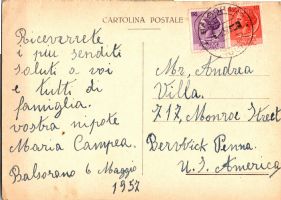 CARTOLINA POSTALE
Riceverrete
i piu senditi
saluti a voi
e tutti di
famiglia.
vostra nipote
Maria Campea.
Balsorano 6 Maggio
1957
Mr, Andrea
Villa.
717, Monroe Street
Berwick Penna.
U. S, America